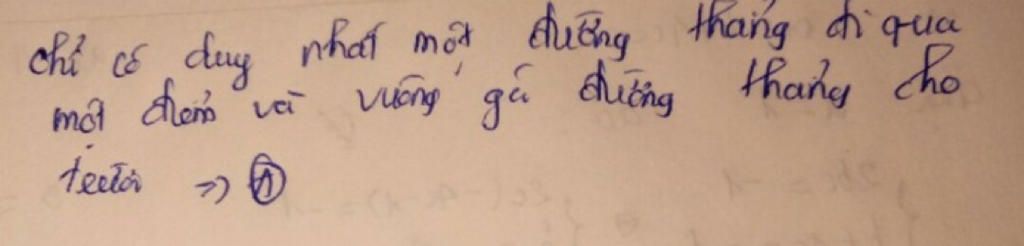 chỉ có duy nhất một đường thẳng đi qua
một điểm và vuông gó đường thẳng cho
trước => ①